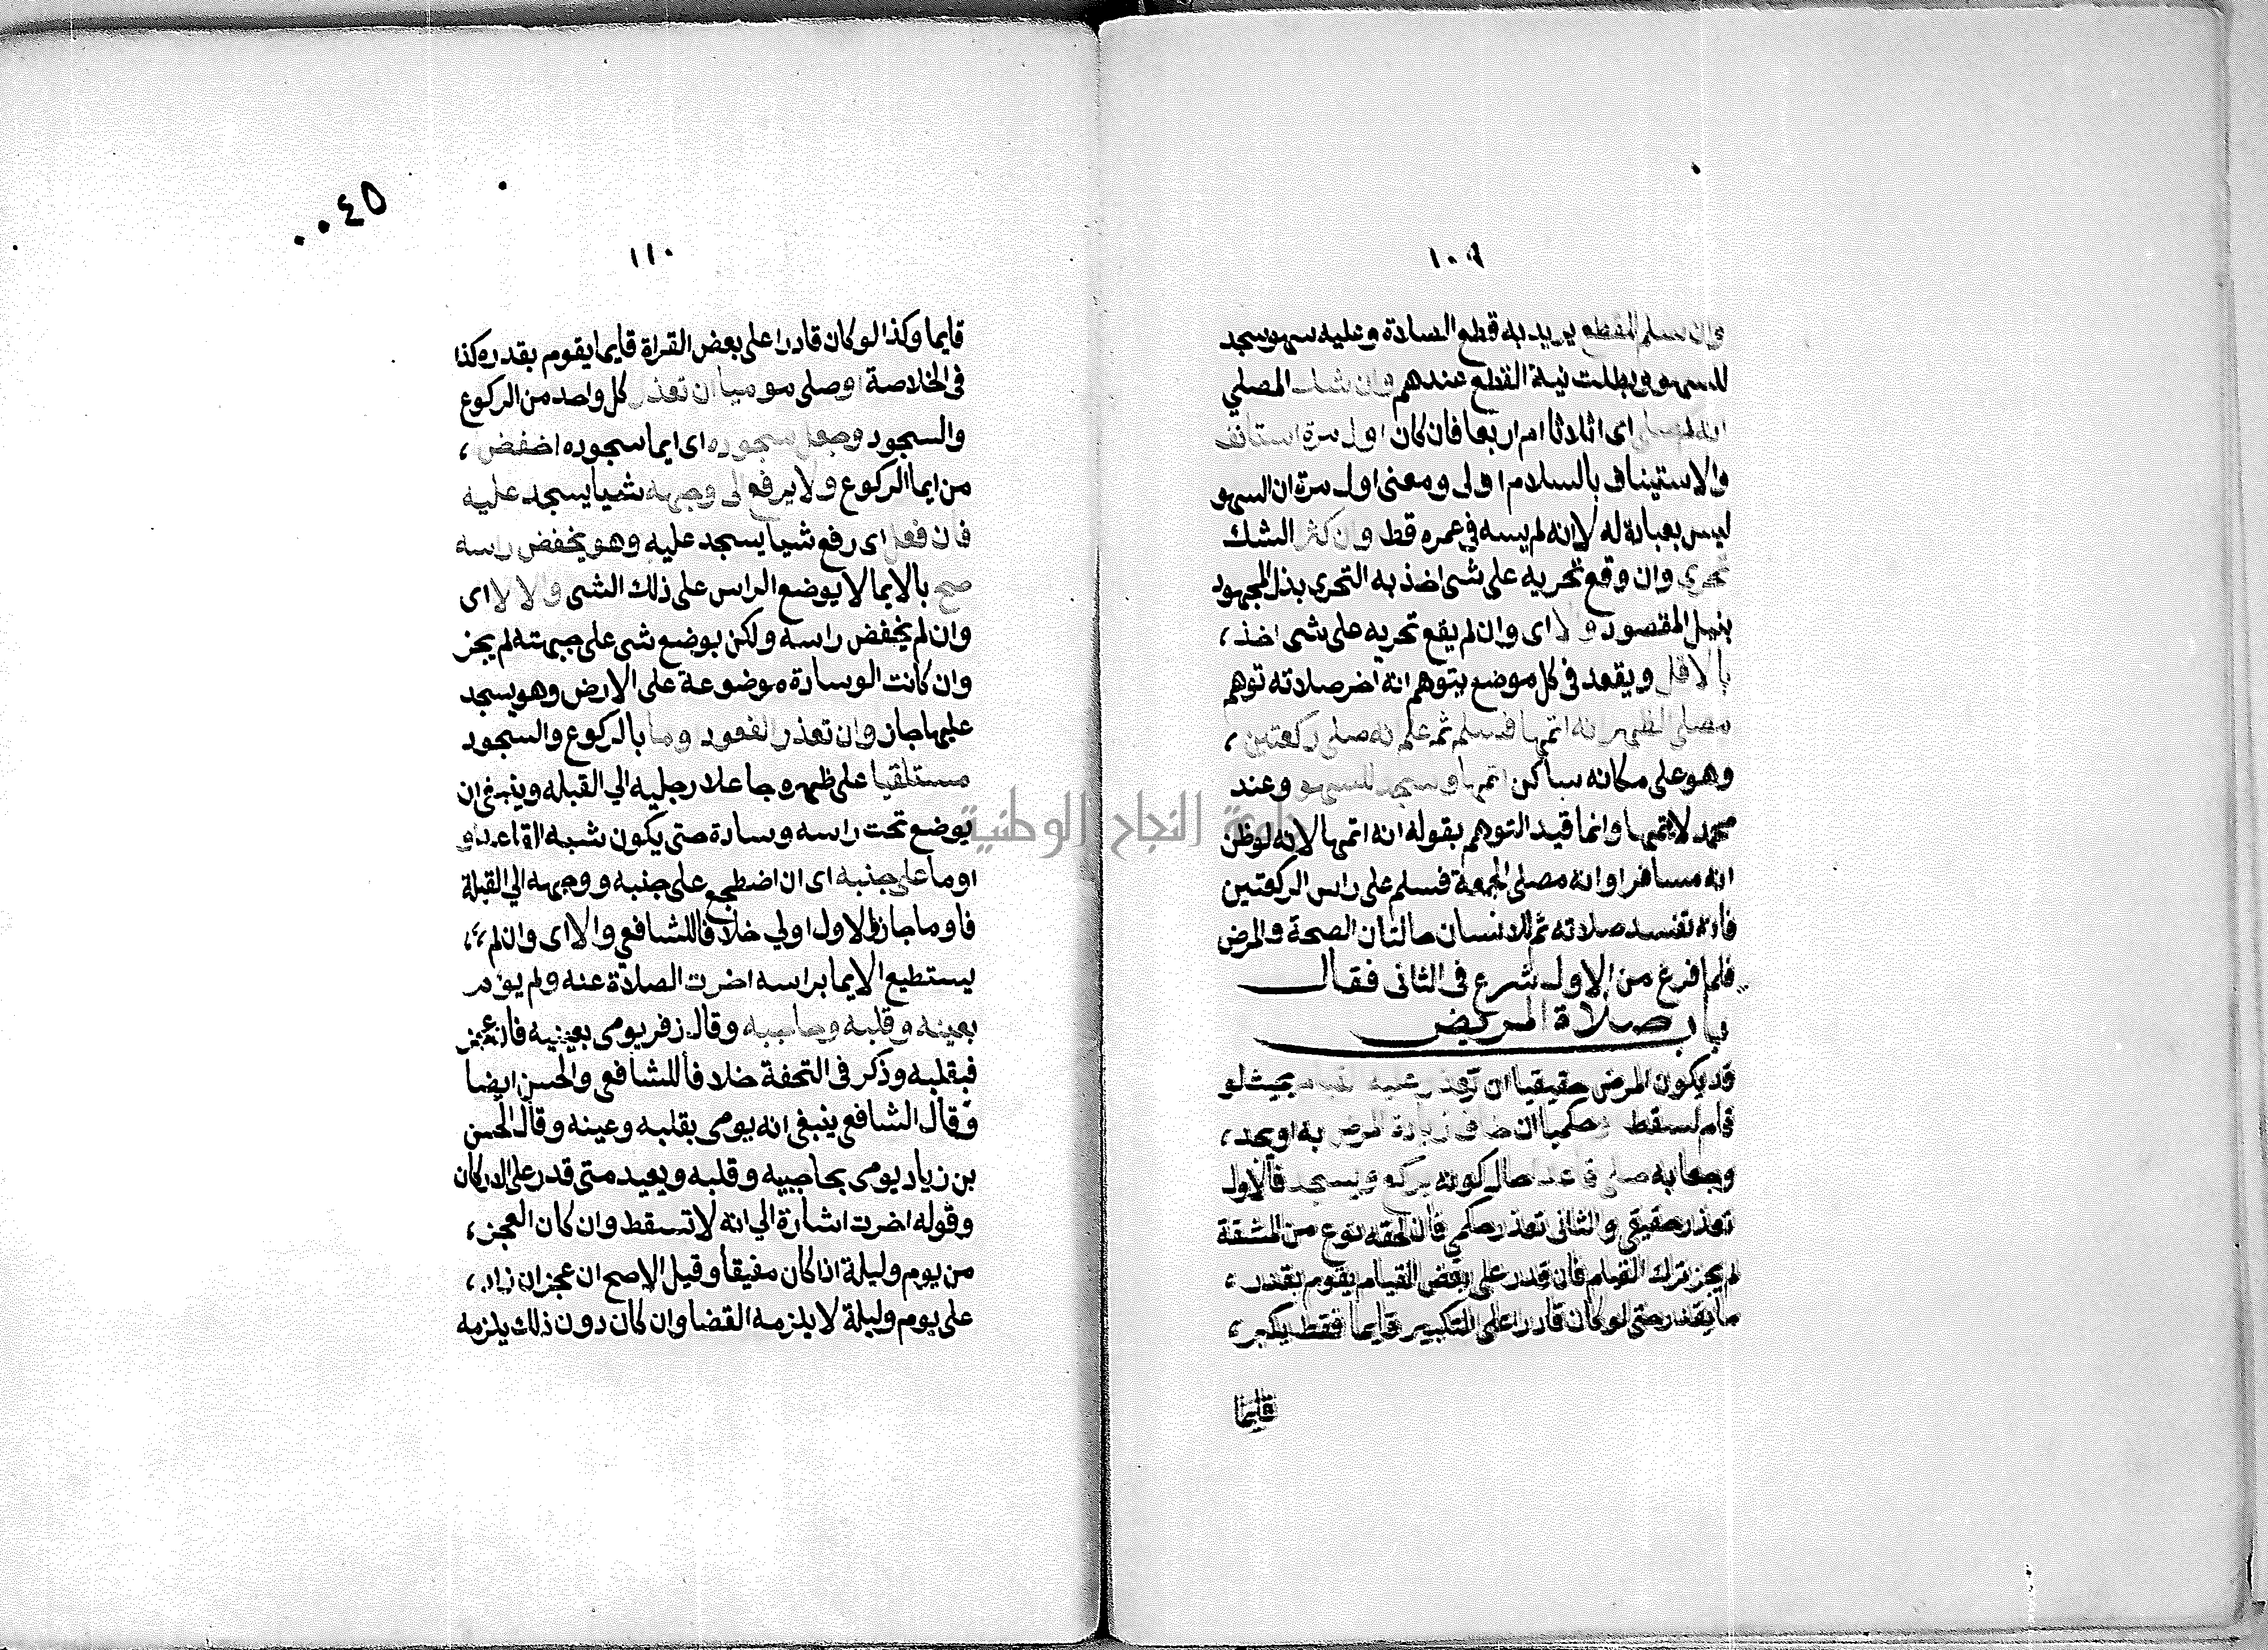 ١٠٩
وان سلم للقطع يريد به قطع الصلاة وعليه سهو سجد
للسهو وبطلت نية القطع عندهم وان شك المصلي
انه صلى اى اثلاثا ام اربعا فان كان اول مرة استانف
والاستيناف بالسلام اولى ومعنى اول مرة ان السهو
ليس بعبادة له لا انه لم يسه في عمره قط وان كثر الشك
تحرى وان وقع تحريه على شى اخذ به التحرى بذل المجهود
بنيل المقصود والا اى وان لم يقع تحريه على شى اخذ،
بالاقل ويقعد في كل موضع يتوهم انه اخر صلاته توهم
مصلى الظهر انه اتمها فسلم ثم علم انه صلى ركعتين،
وهو على مكانه ساكن اتمها وسجد للسهو وعند
محمد لا يتمها وانما قيد التوهم بقوله انه اتمها لانه لو ظن
انه مسافر او انه مصلى الجمعة فسلم على راس الركعتين
فانه تفسد صلاته ثم للانسان حالتان الصحة والمرض
فلما فرغ من الاول شرع فى الثانى فقال
باب صلاة المريض
قد يكون المرض حقيقيا ان تعذر عليه القيام بحيث لو
قام لسقط وحكميا ان خاف زيادة المرض به او يجد،
وجعا به صلى قاعدا حال كونه يركع ويسجد فالاول
تعذر حقيقي والثانى تعذر حكمي فان لحقه نوع من المشقة
لم يجز ترك القيام فان قدر على بعض القيام يقوم بقدر،
ما يقدر حتى لو كان قادرا على التكبير قايما فقط يكبر،
قايما
٠٠٤٥
١١٠
قايما وكذا لو كان قادرا على بعض القراة قايما يقوم بقدره كذا
فى الخلاصة او صلى موميا ان تعذر كل واحد من الركوع
والسجود وجعل سجوده اى ايما سجوده اخفض،
من ايما الركوع ولا يرفع الى وجهه شيا يسجد عليه
فان فعل اى رفع شيا يسجد عليه وهو يخفض راسه
صح بالايما لا بوضع الراس على ذلك الشى والا لا اى
وان لم يخفض راسه ولكن يوضع شى على جبهته لم يجز
وان كانت الوسادة موضوعة على الارض وهو يسجد
عليها جاز وان تعذر القعود وما بالركوع والسجود
مستلقيا على ظهره جاعلا رجليه الي القبله وينبغى ان
يوضع تحت راسه وسادة حتى يكون شبه القاعد او
اوما على جنبه اى ان اضطجع على جنبه ووجهه الي القبلة
فاوما جاز والاول اولي خلافا للشافعي والا اى وان لم،،
يستطيع الايما براسه اخرت الصلاة عنه ولم يوم
بعينه وقلبه وحاجبيه وقال زفر يومى بعينيه فان عجز
فبقلبه وذكر فى التحفة خلافا للشافعى والحسن ايضا
وقال الشافعي ينبغى انه يومى بقلبه وعينه وقال الحسن
بن زياد يومى بحاجبيه وقلبه ويعيد متى قدر على الاركان
وقوله اخرت اشارة الي انه لا تسقط وان كان العجز،
من يوم وليلة اذا كان مفيقا وقيل الاصح ان عجز ان زاد،
على يوم وليلة لا يلزمه القضا وان كان دون ذلك يلزمه
جامعة النجاح الوطنية